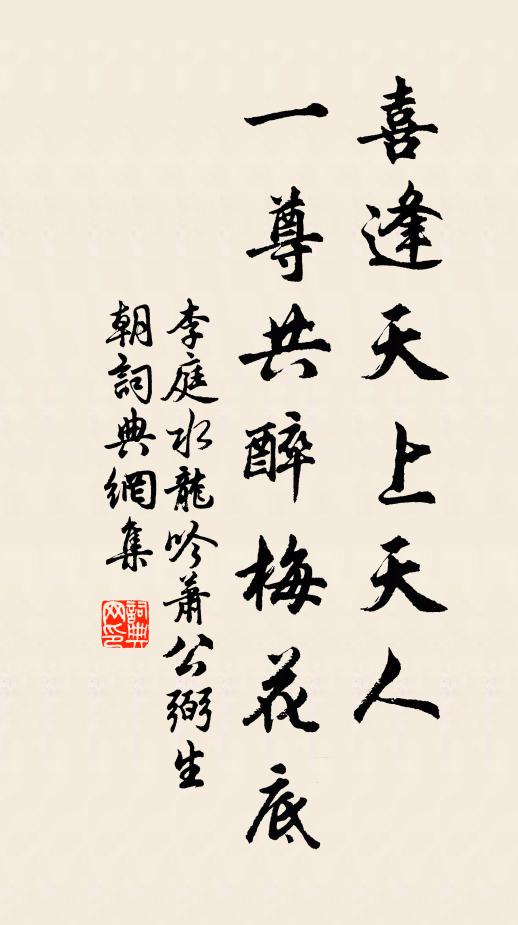 喜逢天上天人
一尊共醉梅花底
李庭水龍吟蕭公弼生
朝詞典網集
詞典网印